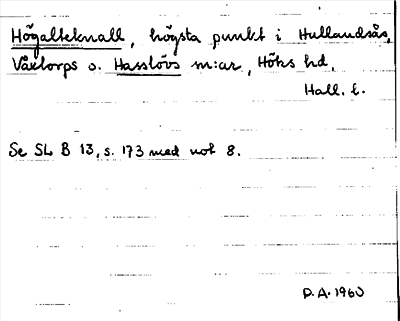 Högalteknall, högsta punkt i Hallandsås,
Våxtorps o. Hasslövs m:ar, Höks hd,
Hall. l.
Se SL B 13, s. 173 med not 8.
P.A. 1960